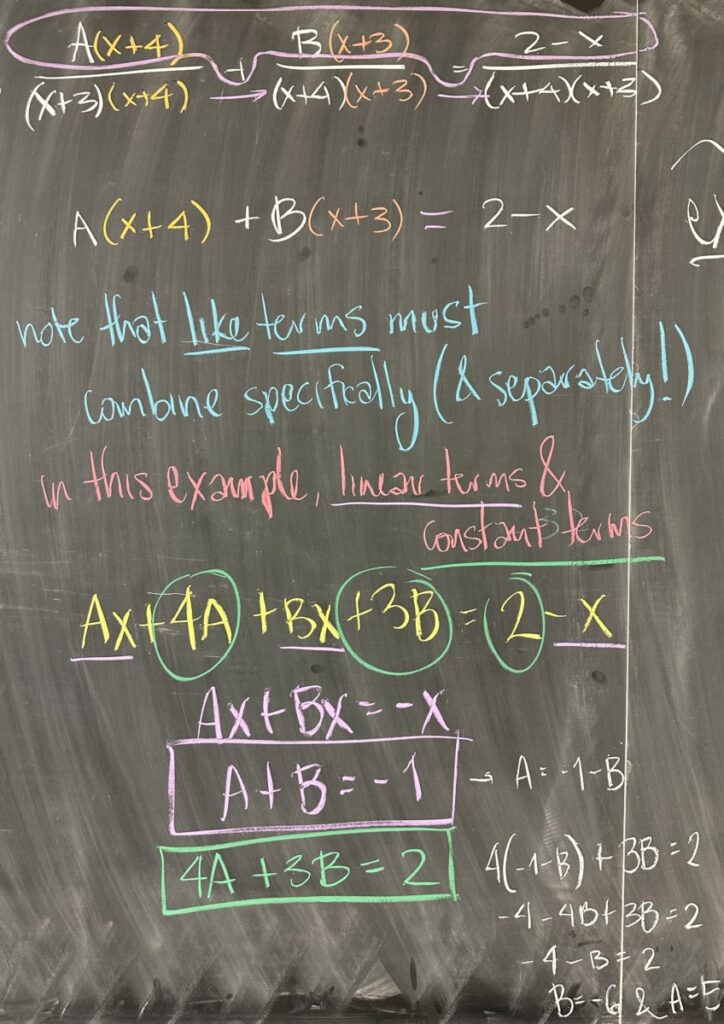 A(x+4)/(x+3)(x+4) + B(x+3)/(x+4)(x+3) = 2-x/(x+4)(x+3)
A(x+4) + B(x+3) = 2-x
note that like terms must
combine specifically (& separately!)
in this example, linear terms &
constant terms
Ax+4A+Bx+3B=2-x
Ax+Bx=-x
A+B=-1 → A=-1-B
4A+3B=2
4(-1-B)+3B=2
-4-4B+3B=2
-4-B=2
B=-6 & A=5